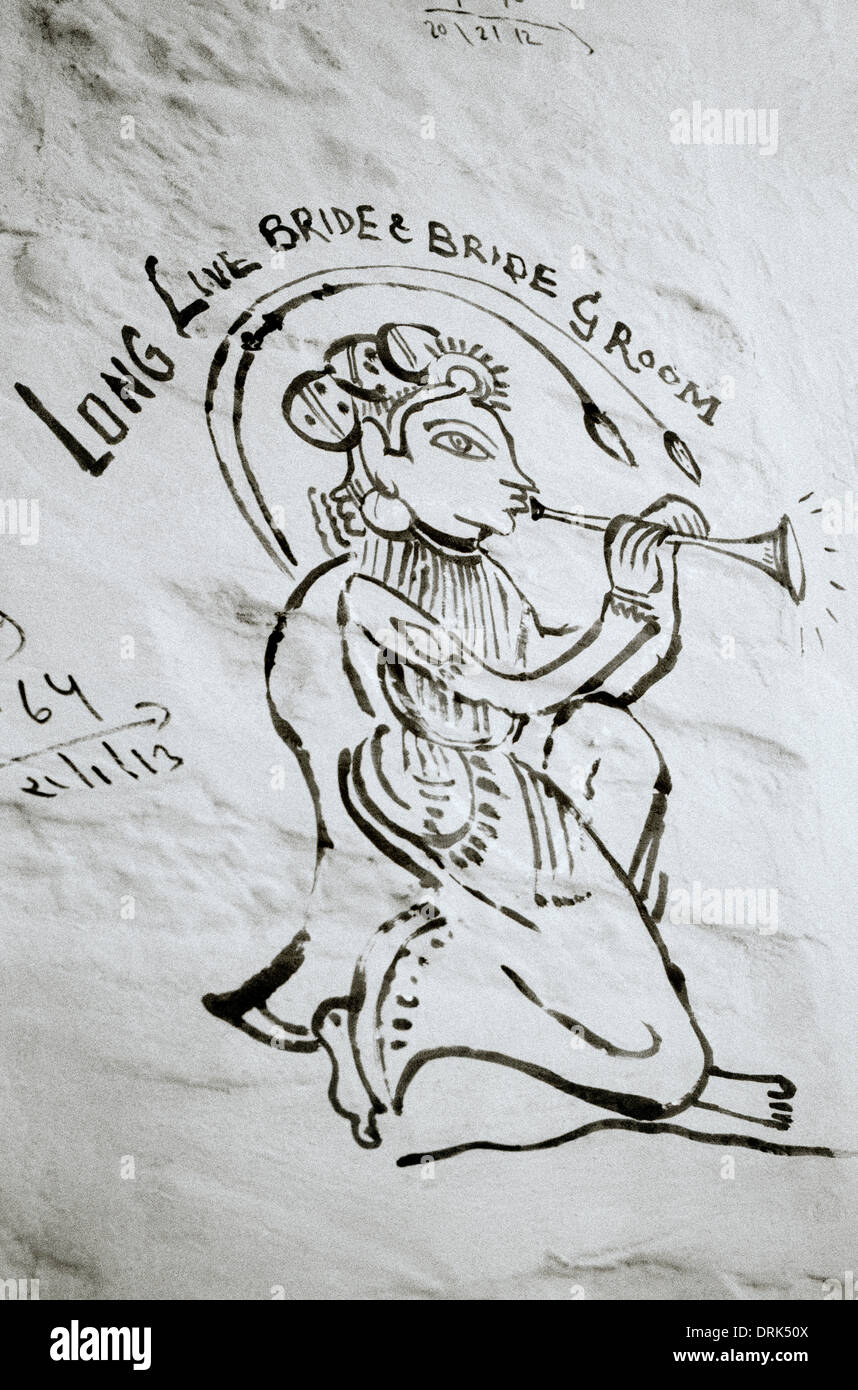 20/21/12
LONG LIVE BRIDE & BRIDE GROOM
64
२१/१/13
alamy
Image ID: DRK50X
www.alamy.com